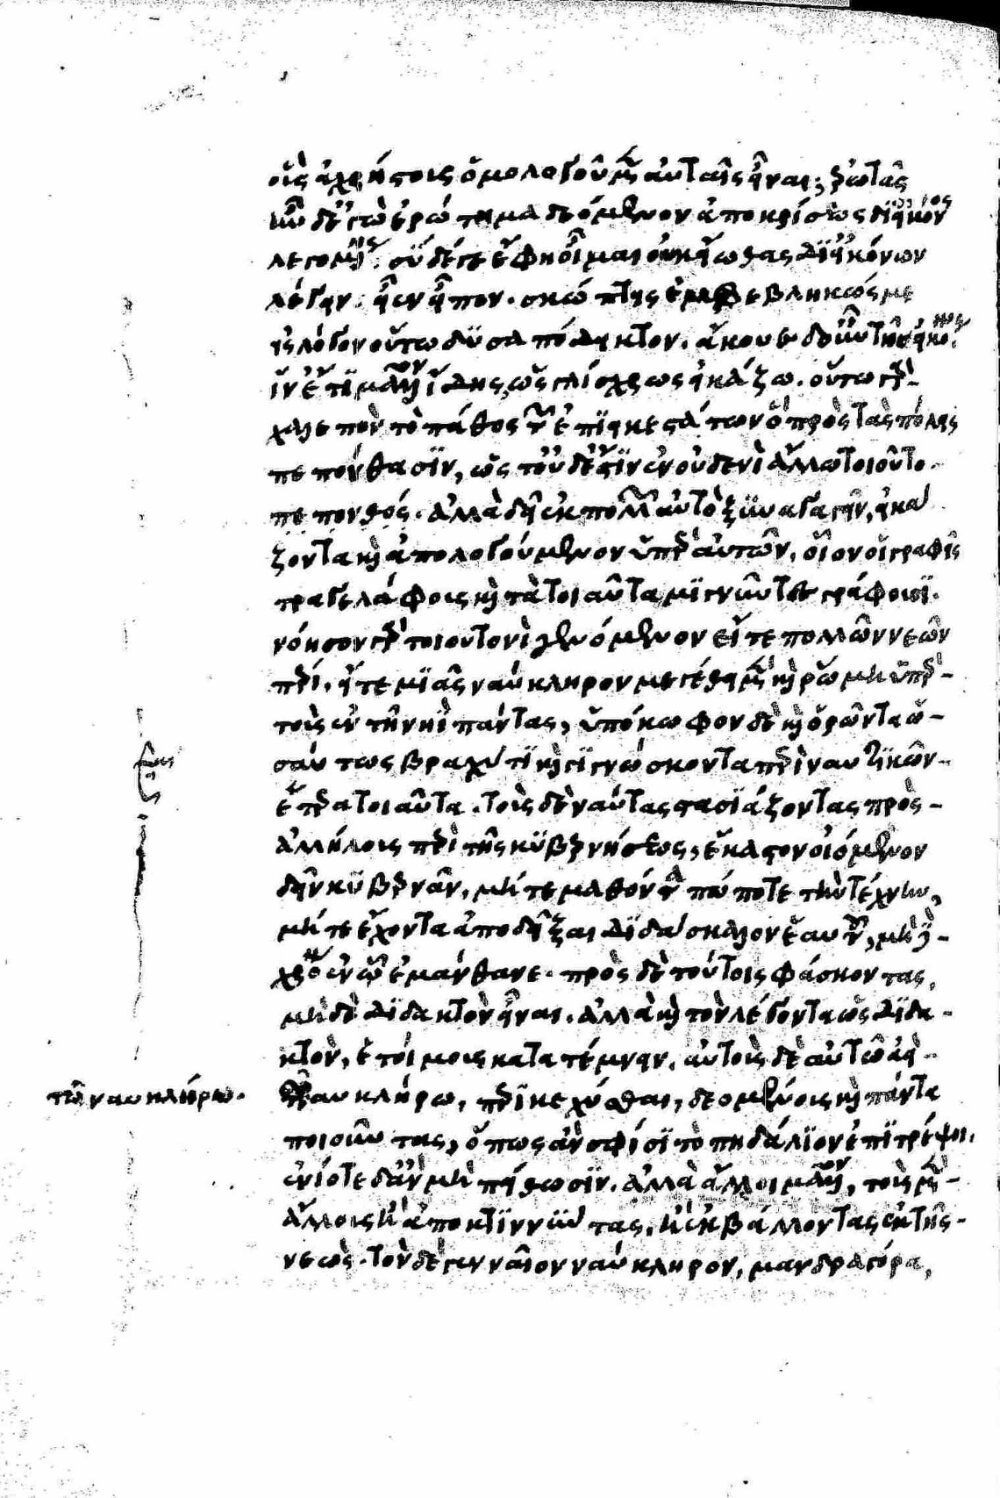 οὓς ἀχρήστους ὁμολογοῦμεν αὐταῖς εἶναι; ἐρωτᾷς
ἦν δ' ἐγὼ ἐρώτημα δεόμενον ἀποκρίσεως δι' εἰκόνος
λεγομένης. σὺ δέ γε ἔφη οἶμαι οὐκ εἴωθας δι' εἰκόνων
λέγειν. εἶεν εἶπον. σκώπτεις ἐμβεβληκώς με
εἰς λόγον οὕτω δυσαπόδεικτον. ἄκουε δ' οὖν τῆς εἰκόνος
ἵν' ἔτι μᾶλλον ἴδῃς, ὡς γλίσχρως εἰκάζω. οὕτω γὰρ
χαλεπὸν τὸ πάθος τῶν ἐπιεικεστάτων ὃ πρὸς τὰς πόλεις
πεπόνθασιν, ὡς οὐδέστιν ἓν οὐδενὶ ἄλλω τοιοῦτο
πεπονθός. ἀλλὰ δεῖ ἐκ πολλῶν αὐτὸ ξυναγαγεῖν, εἰκά
ζοντα καὶ ἀπολογούμενον ὑπὲρ αὐτῶν, οἷον οἱ γραφεῖς
τραγελάφους καὶ τὰ τοιαῦτα μιγνῦντες γράφουσι.
νόησον γὰρ τοιουτονὶ γενόμενον εἴτε πολλῶν νεῶν
πέρι. εἴτε μιᾶς ναύκληρον μεγέθει μὲν καὶ ῥώμῃ ὑπὲρ
τοὺς ἐν τῇ νηῒ πάντας, ὑπόκωφον δὲ καὶ ὁρῶντα ὡ-
σαύτως βραχύ τι καὶ γιγνώσκοντα περὶ ναυτικῶν
ἕτερα τοιαῦτα. τοὺς δὲ ναύτας στασιάζοντας πρὸς
ἀλλήλους περὶ τῆς κυβερνήσεως, ἕκαστον οἰόμενον
δεῖν κυβερνᾶν, μήτε μαθόντα πώποτε τὴν τέχνην,
μήτε ἔχοντα ἀποδεῖξαι διδάσκαλον ἑαυτοῦ, μηδὲ
χρόνον ἐν ᾧ ἐμάνθανε. πρὸς δὲ τούτοις φάσκοντας,
μηδὲ διδακτὸν εἶναι. ἀλλὰ καὶ τὸν λέγοντα ὡς διδα-
κτὸν, ἑτοίμους κατατέμνειν. αὐτοὺς δὲ αὐτῷ ἀεὶ
τῶ ναυκλήρω.
ναυκλήρω, περικεχύσθαι, δεομένους καὶ πάντα
ποιοῦντας, ὅπως ἂν σφίσι τὸ πηδάλιον ἐπιτρέψῃ.
ἐνίοτε δ' ἂν μὴ πείθωσιν. ἀλλὰ ἄλλοι μᾶλλον, τοὺς μὲν
ἄλλους ἢ ἀποκτιννύντας, ἢ ἐκβάλλοντας ἐκ τῆς
νεώς. τὸν δὲ γενναῖον ναύκληρον, μανδραγόρα,